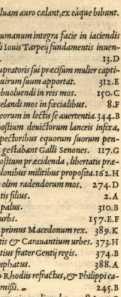 luam auro cælant, ex eaque bibunt.
umanum integra facie in iaciendis
i Iouis Tarpei fundamentis inuen-
13.D
upratoris sui præcisum mulier capti-
uirum suum apportat. 312.E
buoluendi in reis mos. 150.C
elandi mos in fœcialibus. 8.F
eorum in lectis se auertentia. 344.B
ostium deuictorum lanceis infixa,
pectoribus equorum suorum pen-
gestabant Galli Senones. 117.G
ostium præcidenda, libertatis præ-
olonibus militibus proposita. 162.H
olim radendorum mos. 274.D
lis filius. 2.A
palus. 310.B
urbs. 157.E.F
primus Macedonum rex. 389.K
tis & Carauantium urbes. 373.H
tius frater Gentij regis. 374.B
aphatus. 388.A
Rhodijs refractus, & Philippica
misit. 245.B